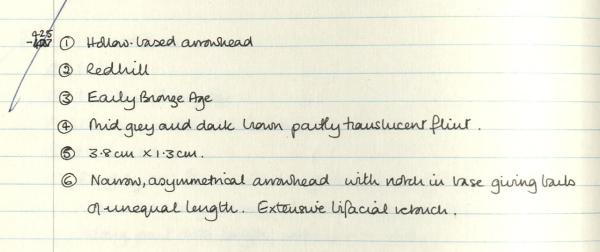 425
① Hollow-based arrowhead
② Redhill
③ Early Bronze Age
④ Mid grey and dark brown partly translucent flint.
⑤ 3.8cm × 1.3cm.
⑥ Narrow, asymmetrical arrowhead with notch in base giving barbs
of unequal length. Extensive bifacial retouch.